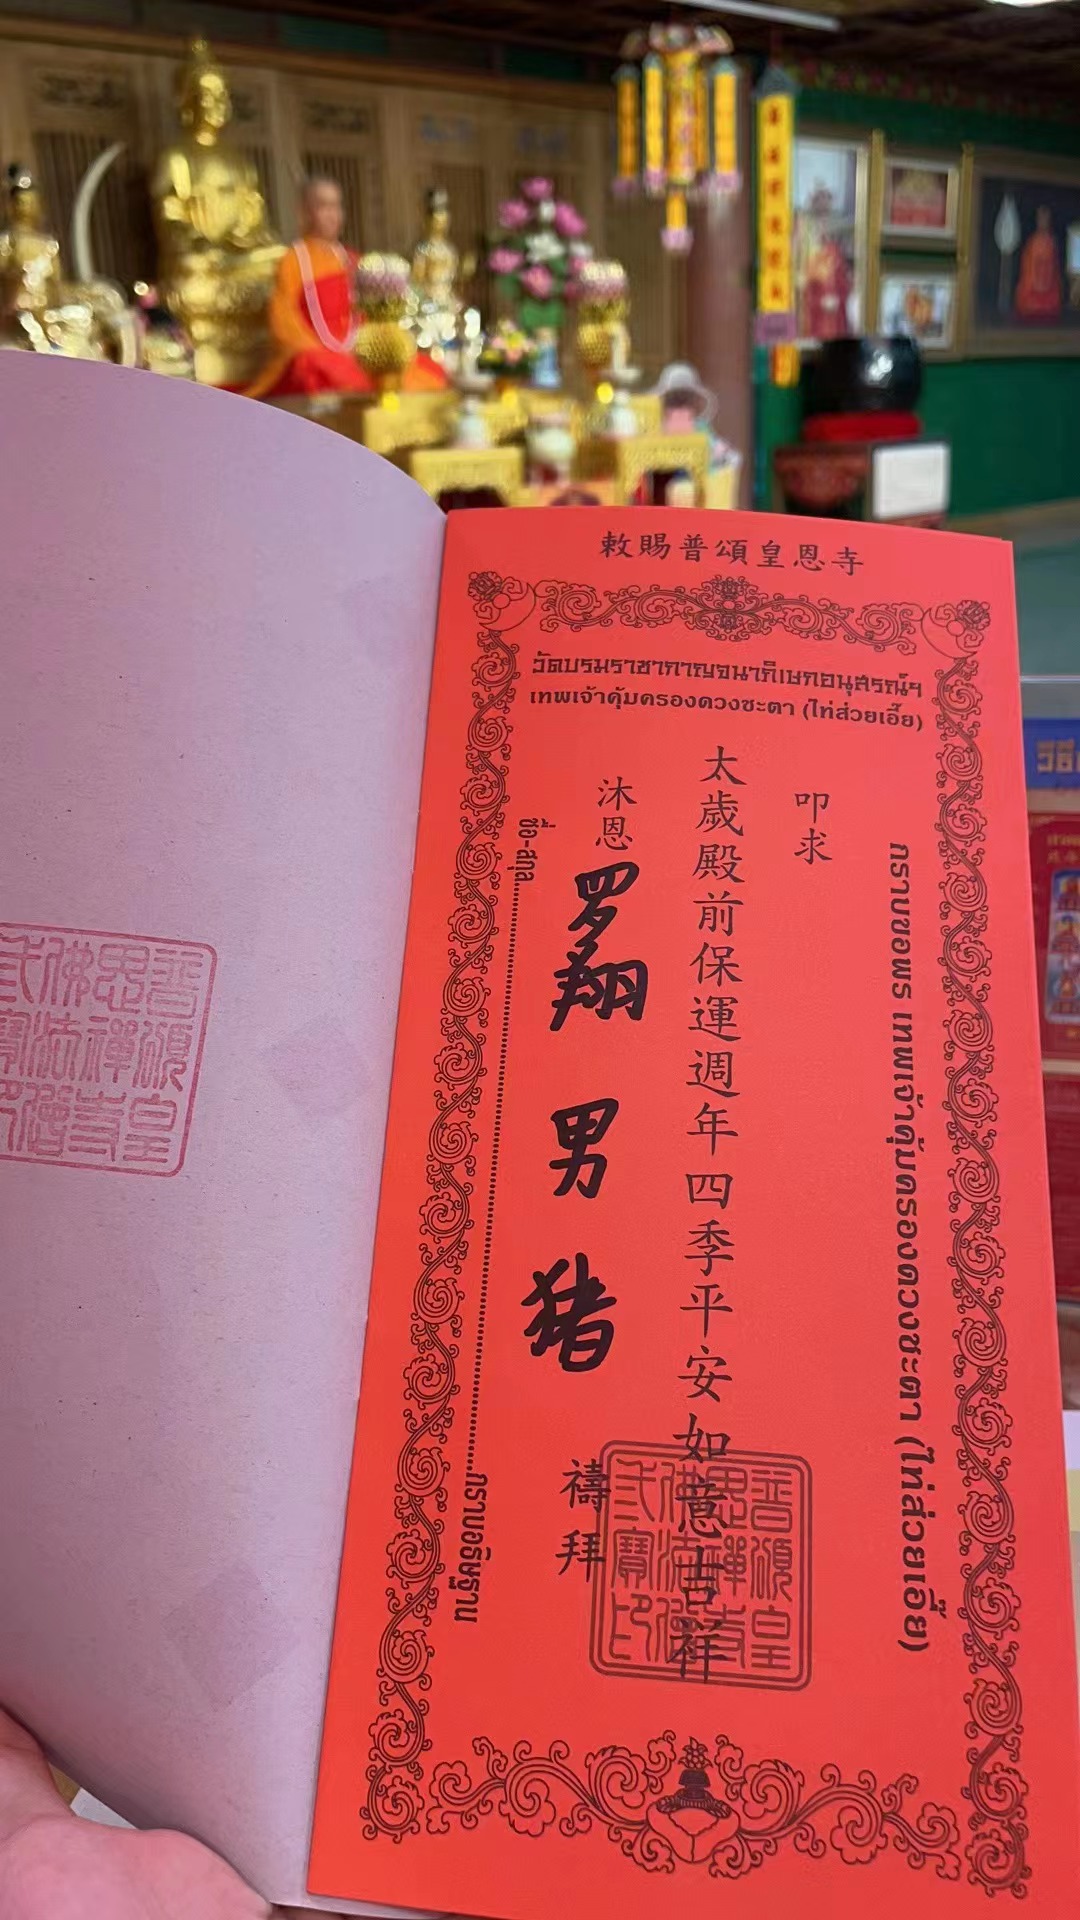 敕賜普頌皇恩寺
วัดบรมราชากาญจนาภิเษกอนุสรณ์ฯ
เทพเจ้าคุ้มครองดวงชะตา (ไท่ส่วยเอี๊ย)
กราบขอพร เทพเจ้าคุ้มครองดวงชะตา (ไท่ส่วยเอี๊ย)
叩求
太歲殿前保運週年四季平安如意吉祥
沐恩 罗翔 男 猪 禱拜
ชื่อ-สกุล กราบอธิษฐาน
普頌皇
恩禪寺
佛法僧
弍寶印
วิธี